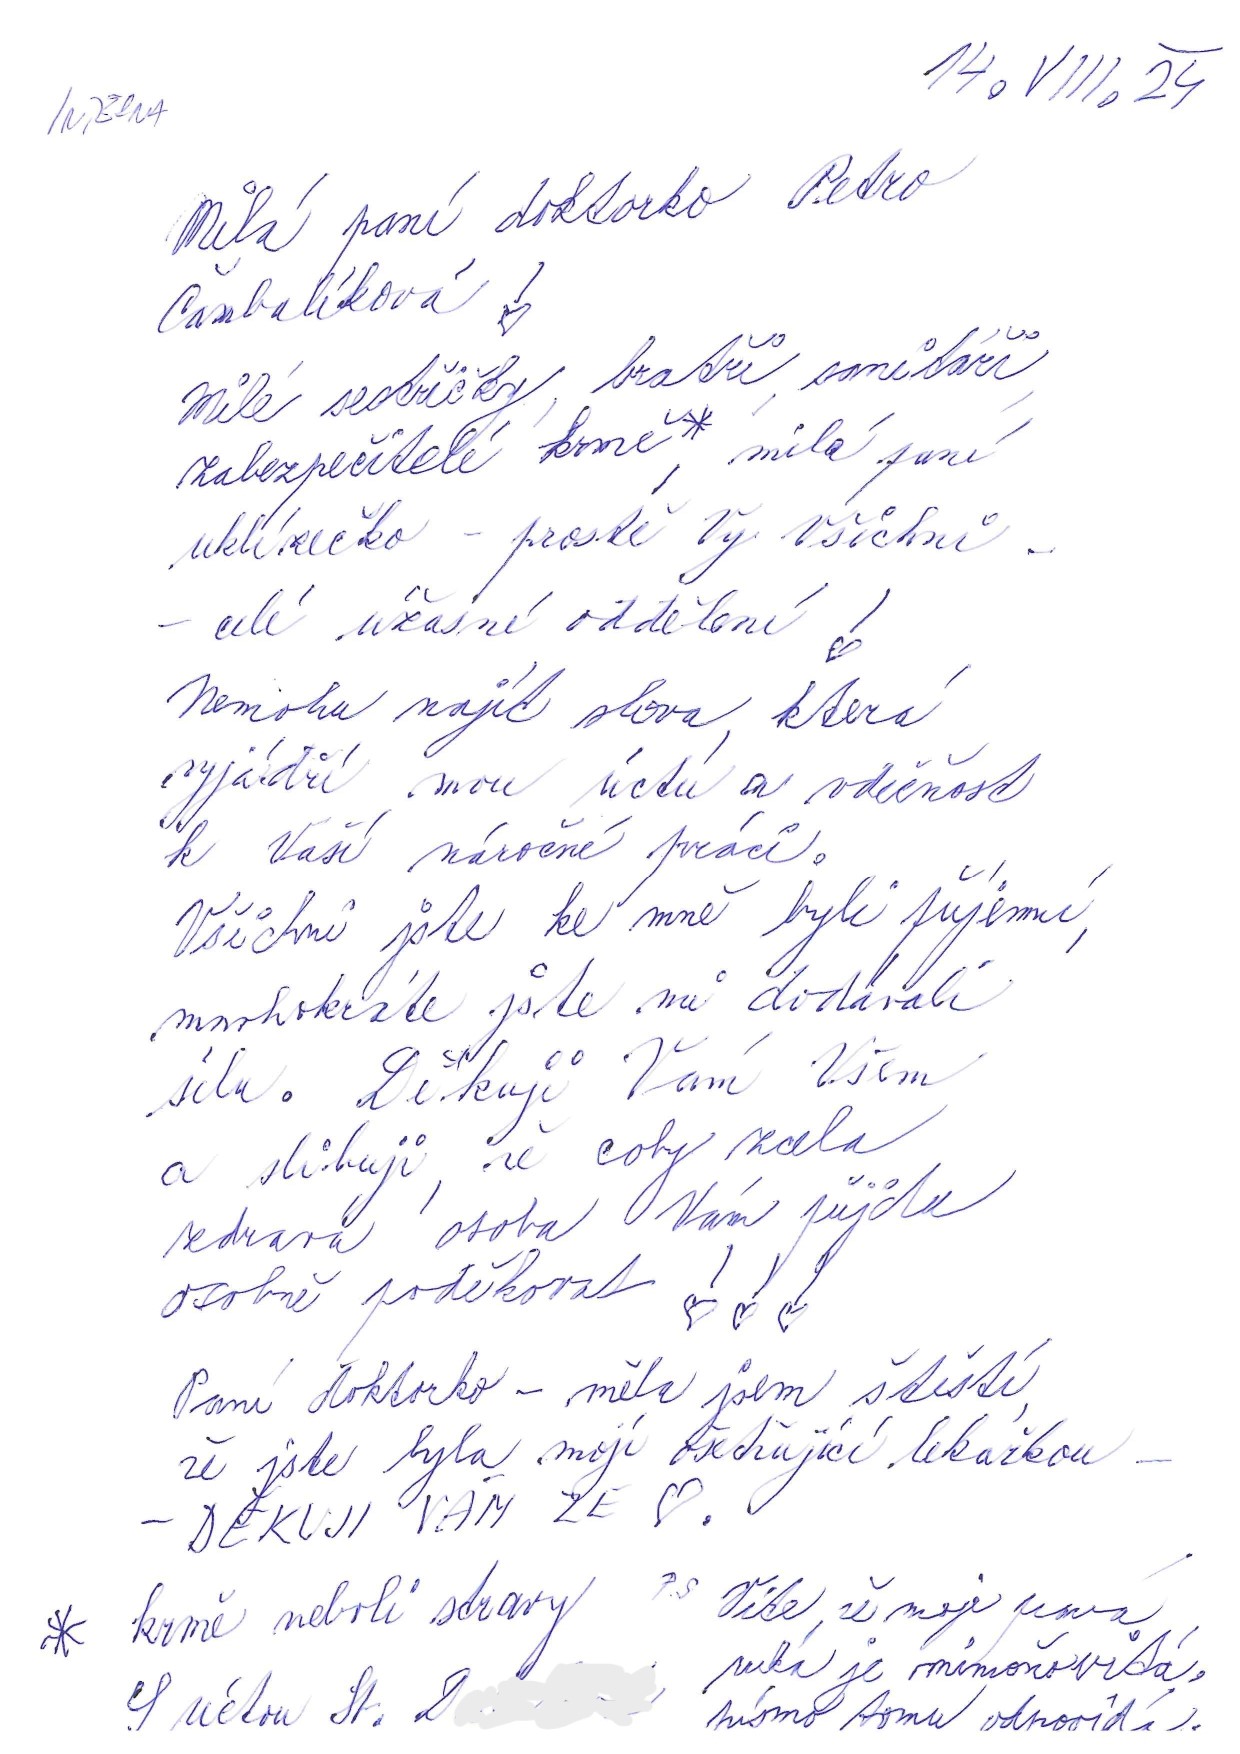 14. VIII. 24
INTERNA
Milá paní doktorko Petro
Čambalíková!
Milé sestřičky, bratři, sanitáři,
zabezpečitelé krmě*, milá paní
uklízečko - prostě Vy Všichni -
- celé úžasné oddělení!
Nemohu najít slova, která
vyjádří mou úctu a vděčnost
k Vaší náročné práci.
Všichni jste ke mně byli příjemní,
mnohokráte jste mi dodávali
sílu. Děkuji Vám Všem
a slibuji, že coby zcela
zdravá osoba Vám přijdu
osobně poděkovat !!!
Paní doktorko - měla jsem štěstí,
že jste byla mojí ošetřující lékařkou -
- DĚKUJI VÁM ZE ♡.
* krmě neboli stravy
S úctou St. D
P.S Víte, že moje pravá
ruka je mimoňovitá.
Písmo tomu odpovídá.